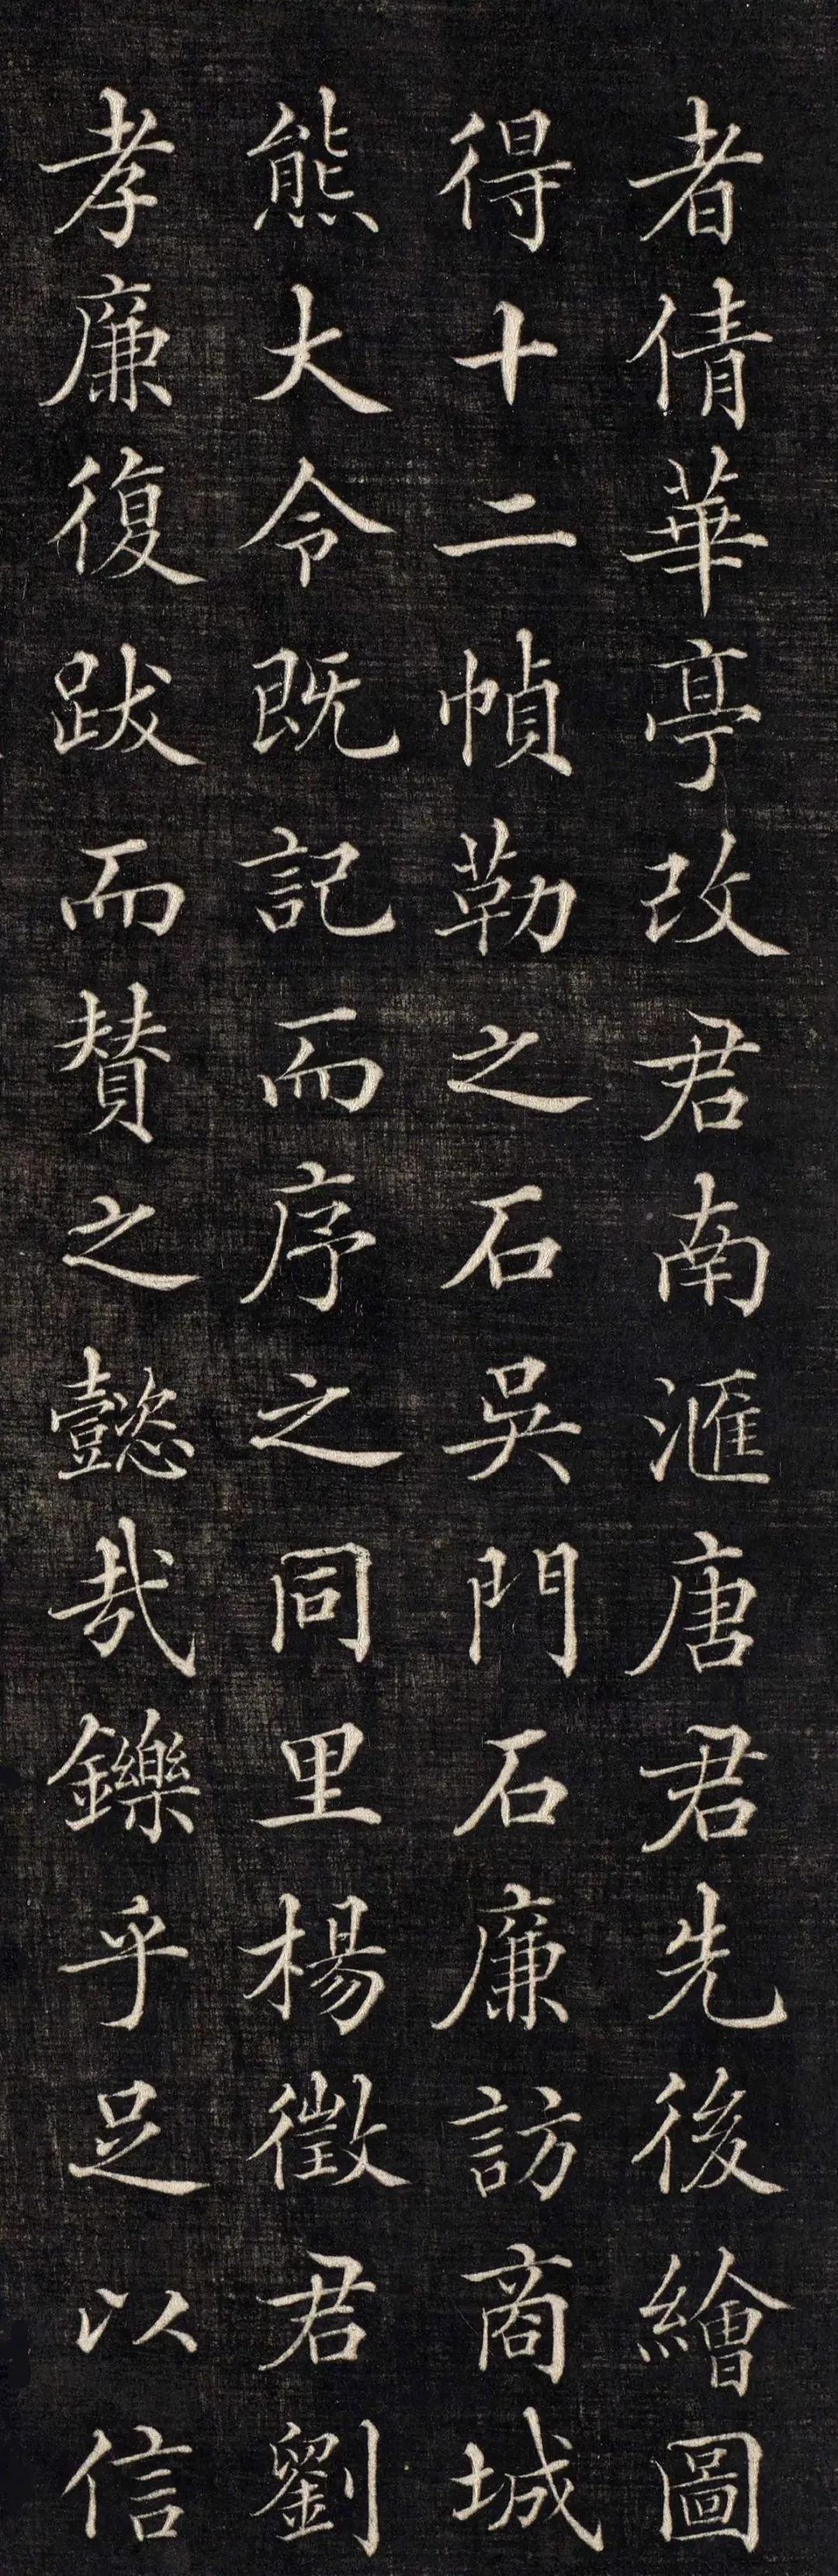 者倩華亭改君南滙唐君先後繪圖
得十二幀勒之石吳門石廉訪商城
熊大令既記而序之同里楊徵君劉
孝廉復跋而賛之懿哉鑠乎足以信